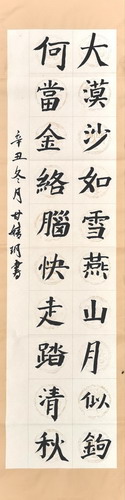 大漠沙如雪燕山月似鈎
何當金絡腦快走踏清秋
辛丑冬月甘績玥書